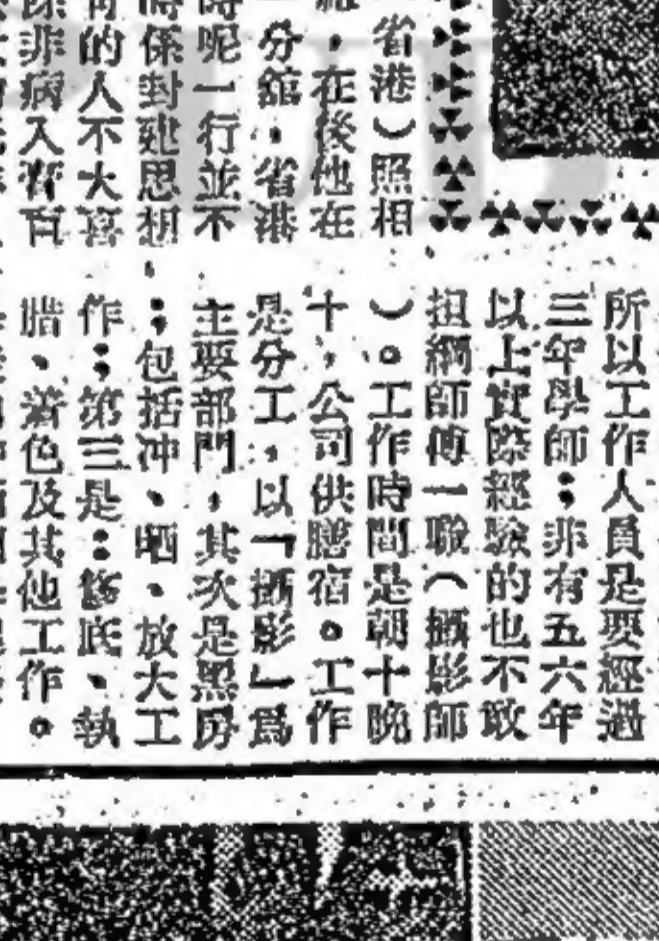 所以工作人員是要經過
三年學師；非有五六年
以上實際經驗的也不敢
担綱師傅一職（攝影師
）。工作時間是朝十晚
十，公司供膳宿。工作
是分工，以「攝影」為
主要部門，其次是黑房
；包括冲、晒、放大工
作；第三是：修底、執
腊、着色及其他工作。
省港）照相
，在後他在
分館，省港
時呢一行並不
時係封建思想
的人不大喜
非病入膏肓